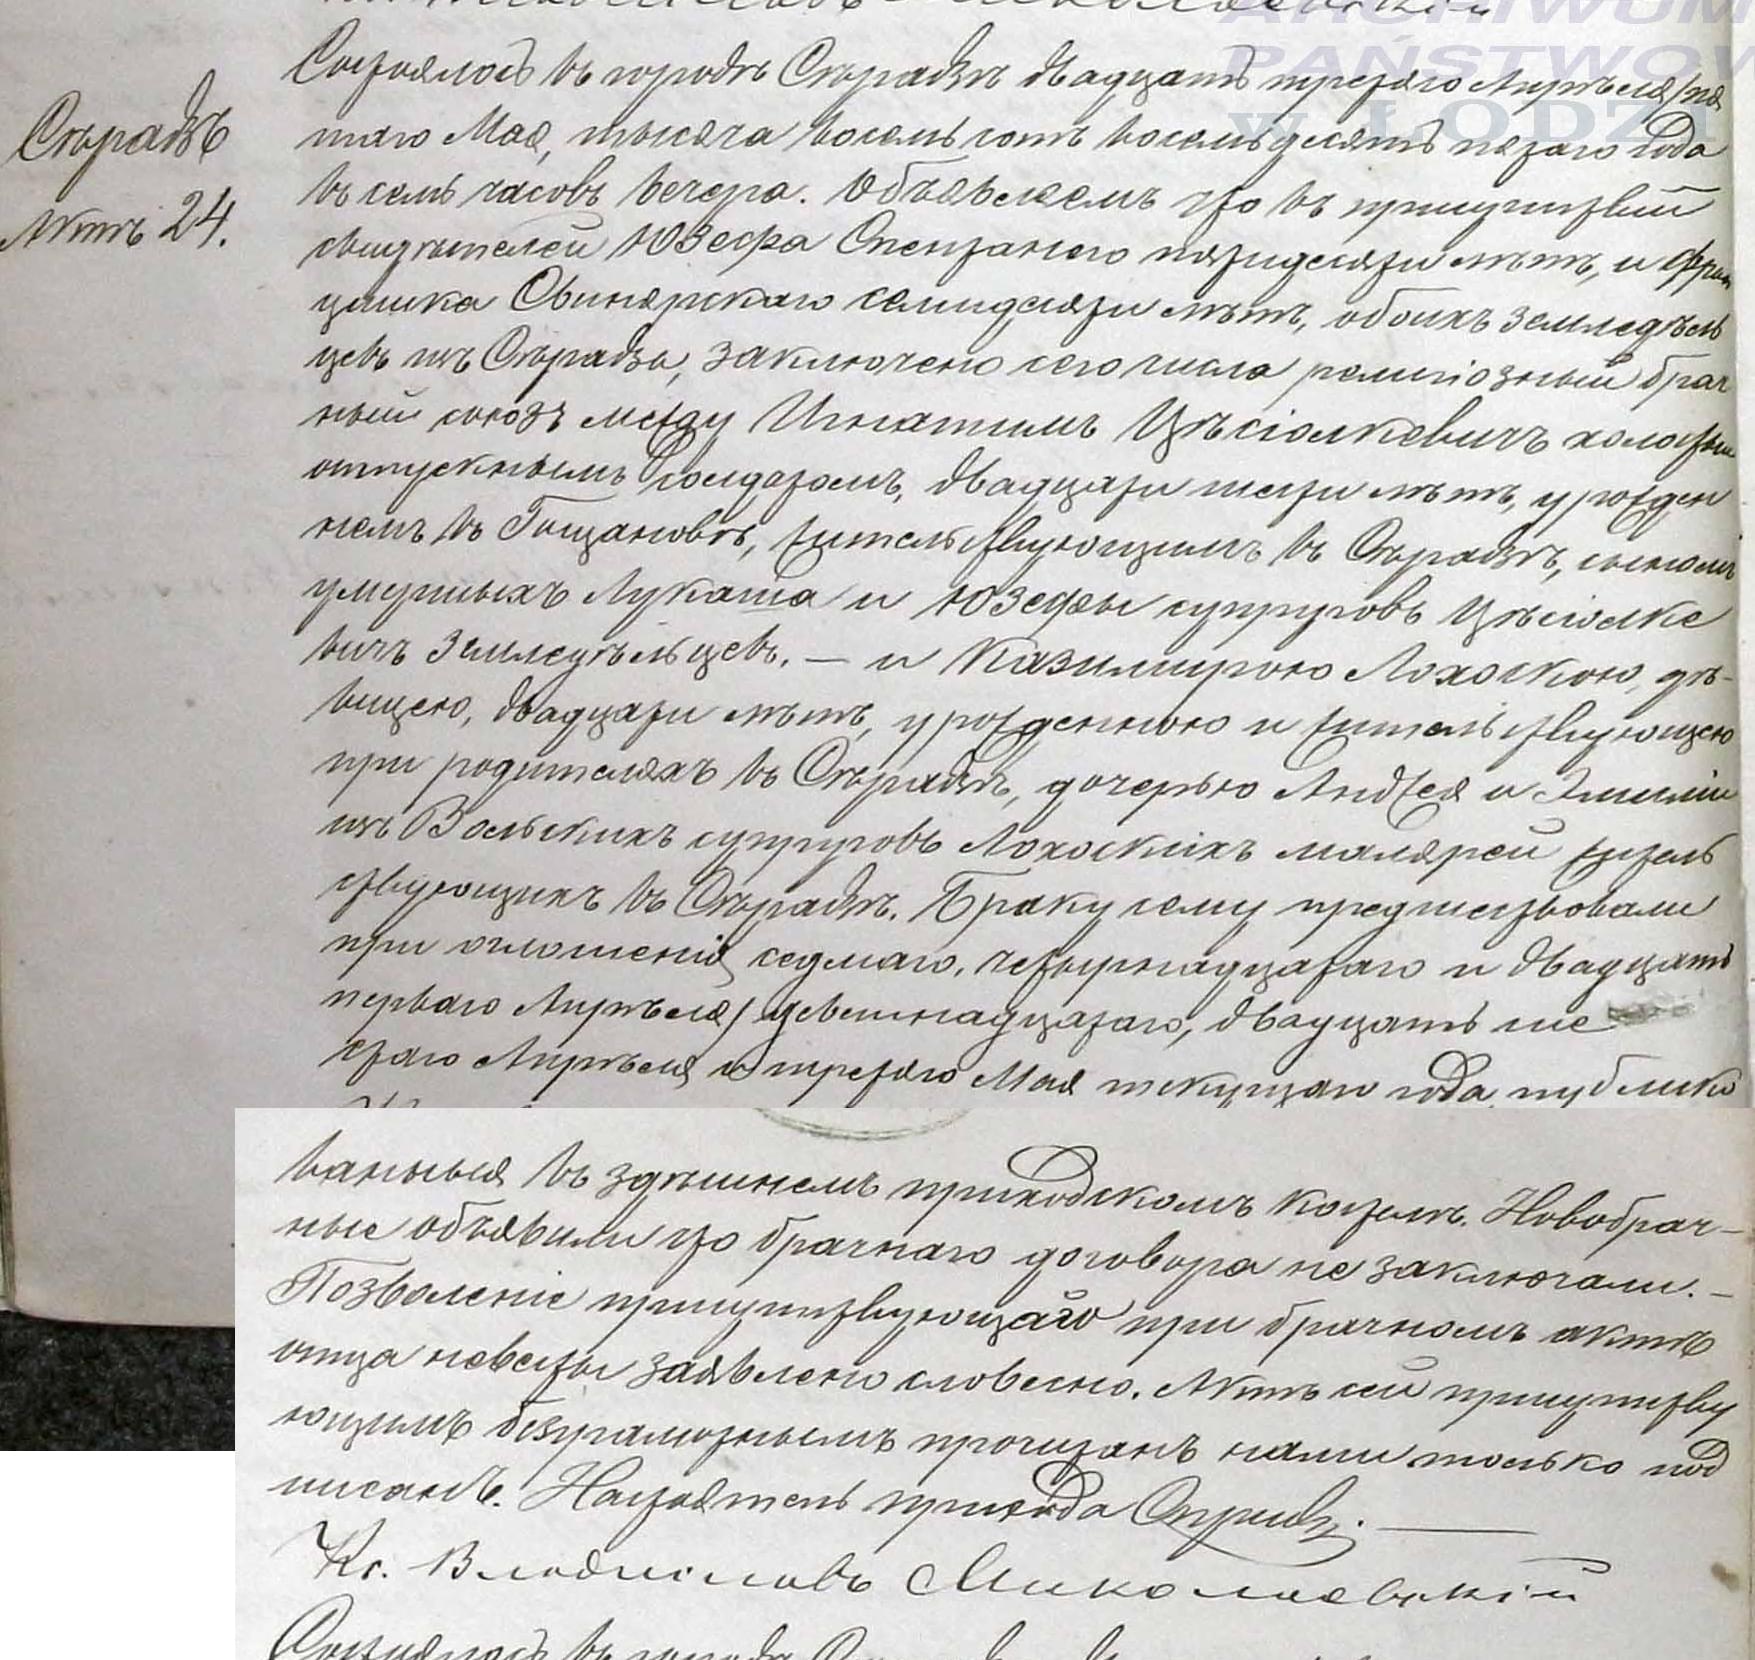 ARCHIWUM
PAŃSTWOW
w ŁODZI
Состоялось въ городѣ Сѣрадзѣ двадцать третьяго Апрѣля/пя
таго Мая, тысяча восемьсотъ восемьдесятъ пятаго года
Сѣрадзь
въ семь часовъ вечера. Объявляемъ что въ присутствіи
Актъ 24.
свидѣтелей Юзефа пятидесяти лѣтъ, и Фран
цишка Свинярскаго семидесяти лѣтъ, обоихъ земледѣль
цевъ изъ Сѣрадза, заключено сего числа религіозный брач
ный союзъ между Игнатимъ Цѣсіолкевичъ холостым
отпускнымъ солдатомъ, двадцати шести лѣтъ, урожден
немъ въ Гощановѣ, жительствующимъ въ Сѣрадзѣ, сыномъ
умершыхъ Лукаша и Юзефы супруговъ Цѣсіолке
вичъ земледѣльцевъ. — и Казимирою Лохоскою, дѣ-
вицею, двадцати лѣтъ, урожденною и жительствующею
при родителяхъ въ Сѣрадзѣ, дочерью Анджея и Эмиліи
изъ Вольскихъ супруговъ Лохоскихъ малярей житель
ствующихъ въ Сѣрадзѣ. Браку сему предшествовали
при оглошенія седмаго, четырнадцатаго и двадцать
перваго Апрѣля/девятнадцатаго, двадцать ше
стаго Апрѣля и третяго Мая текущаго года, публико
ванныя въ здѣшнемъ приходскомъ костелѣ. Новобрач-
ные объявили что брачнаго договора не заключали. —
Позволеніе присутствующаго при брачномъ актѣ
отца невесты заявлено словесно. Актъ сей присутству
ющимъ безграмотнымъ прочитанъ нами только под
писанъ. Настоятель прихода
Кс. Владиславъ Миколаевскій
Состоялось въ города